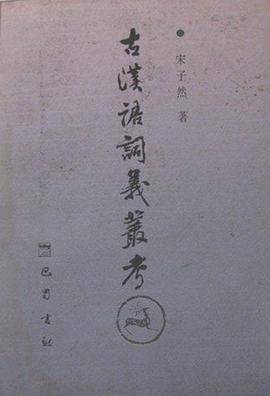 宋子然 著
古漢语詞義叢考
巴蜀书社